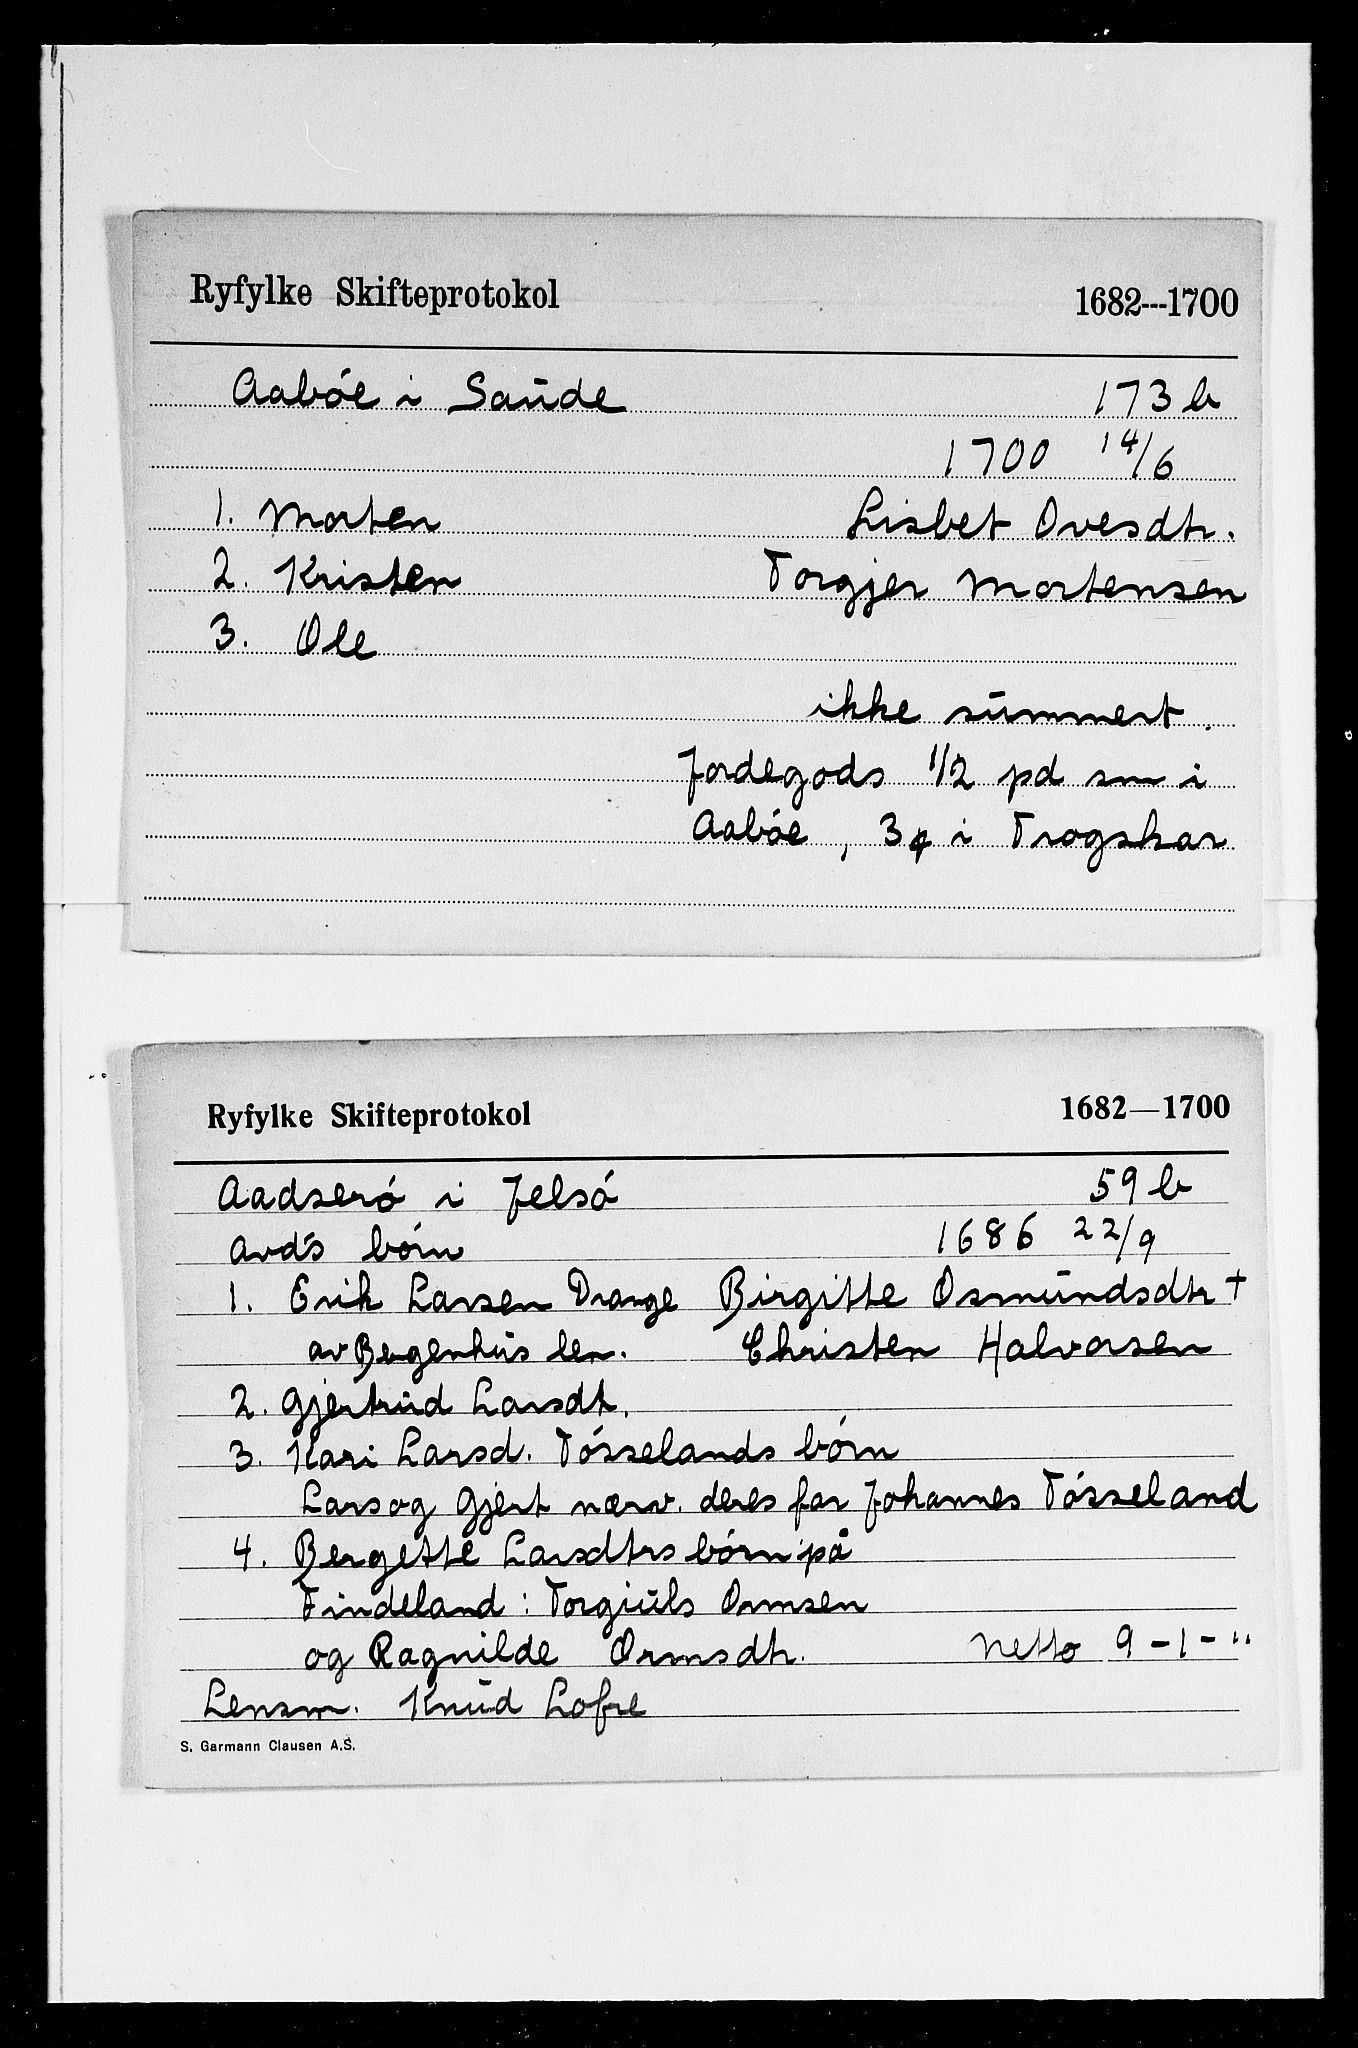 Ryfylke Skifteprotokol 1682---1700
Aabóe i Saūde 173 b
1700 14/6
1. Morten Lisbet Ovesdtr.
2. Kristen Torgjer Mortensen
3. Ole
ikke sūmmert.
Jordegods 1/2 pd sm i
Aabóe, 3 i Trogskar
Ryfylke Skifteprotokol 1682—1700
Aadseró i Jelsó 59 b
avds börn 1686 22/9
1. Erik Larsen Drange Birgitte Osmūndsdtr +
av Bergenhūs len. Christen Halvorsen
2. Gjertrūd Larsdt.
3. Kari Larsd. Tósselands börn
Lars og Gjert nærv. deres far Johannes Tósseland
4. Bergette Larsdtrs börn på
Tindeland: Torgiūls Ormsen
og Ragnilde Ormsdtr. Netto 9-1-"
Lensm. Knūd Lofre
S. Garmann Clausen A.S.